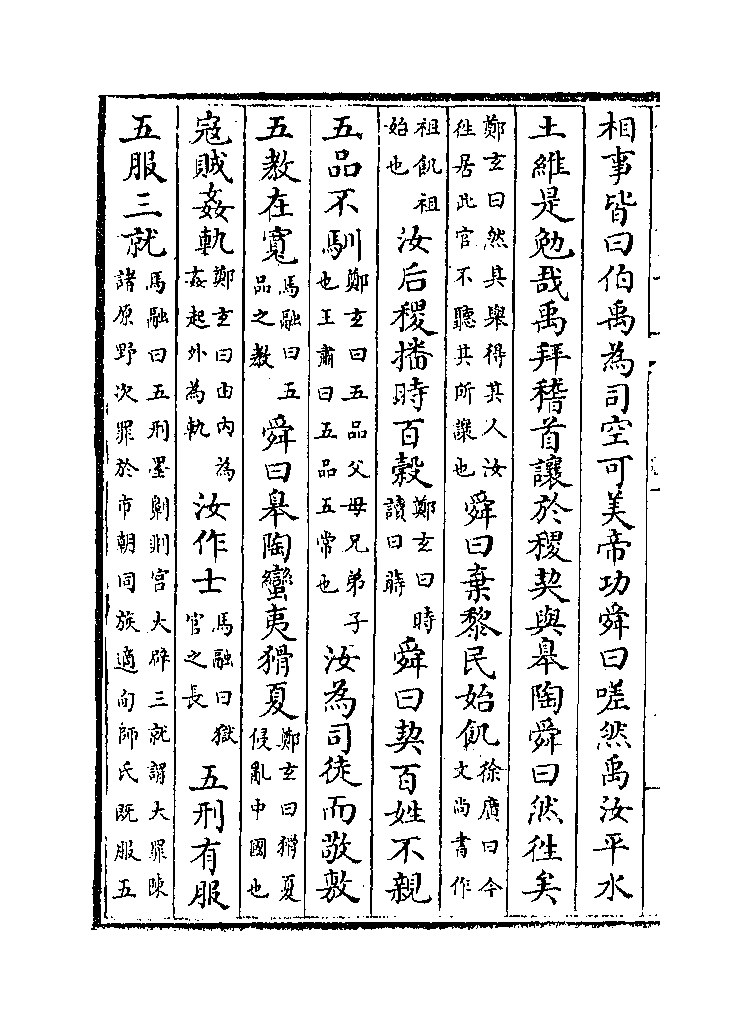 相事皆曰伯禹為司空可美帝功舜曰嗟然禹汝平水
土維是勉哉禹拜稽首讓於稷契與皋陶舜曰然徃矣
鄭玄曰然其舉得其人汝徃居此官不聽其所讓也舜曰棄黎民始飢徐廣曰今文尚書作
祖飢祖始也汝后稷播時百榖鄭玄曰時讀曰蒔舜曰契百姓不親
五品不馴鄭玄曰五品父母兄弟子也王肅曰五品五常也汝為司徒而敬敷
五教在寛馬融曰五品之教舜曰皋陶蠻夷猾夏鄭玄曰猾夏侵亂中國也
寇賊姦軌鄭玄曰由内為姦起外為軌汝作士馬融曰獄官之長五刑有服
五服三就馬融曰五刑墨劓剕宫大辟三就謂大罪陳諸原野次罪於市朝同族適甸師氏既服五